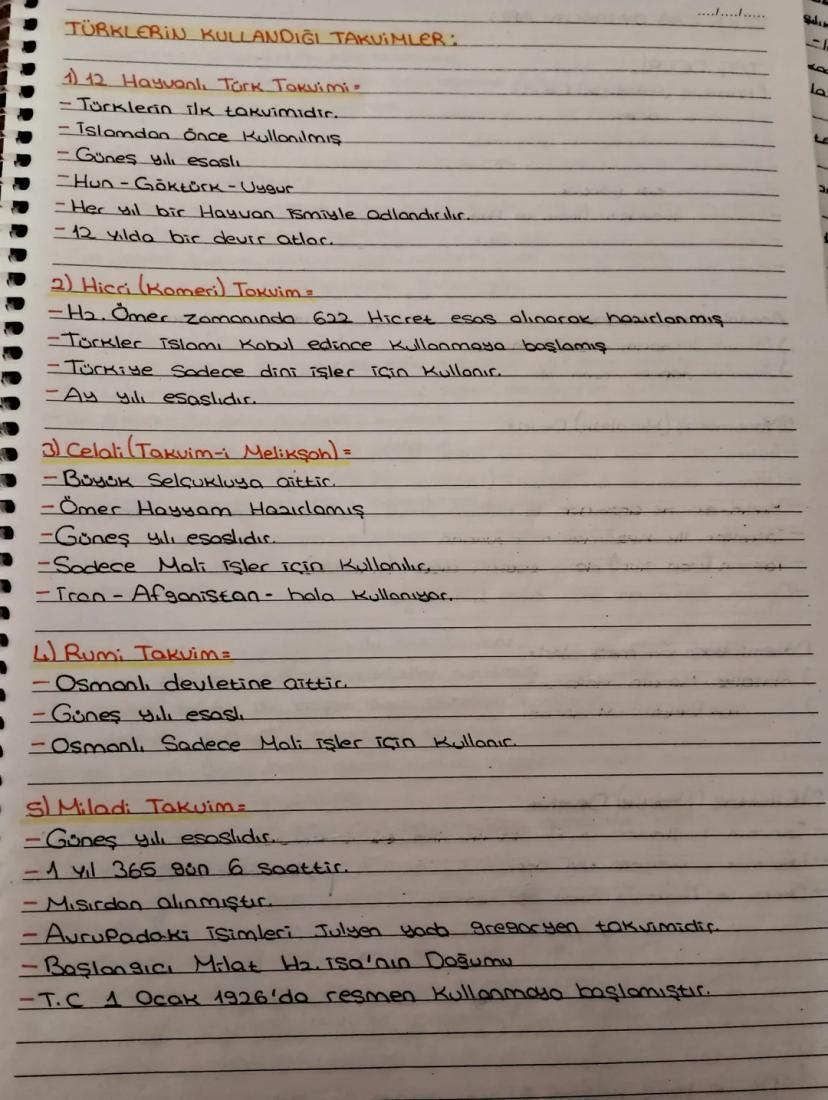 ..../..../.....
TÜRKLERİN KULLANDIĞI TAKVİMLER:
1) 12 Hayvanlı Türk Takvimi=
- Türklerin ilk takvimidir.
- İslamdan önce Kullanılmış
- Güneş yılı esaslı
- Hun - Göktürk - Uygur
- Her yıl bir Hayvan ismiyle adlandırılır.
- 12 yılda bir devir atlar.
2) Hicri (Kameri) Takvim=
- Hz. Ömer zamanında 622 Hicret esas alınarak hazırlanmış
- Türkler İslamı Kabul edince Kullanmaya başlamış
- Türkiye Sadece dini işler için Kullanır.
- Ay yılı esaslıdır.
3) Celali (Takvim-i Melikşah)=
- Büyük Selçukluya aittir.
- Ömer Hayyam Hazırlamış
- Güneş yılı esaslıdır.
- Sadece Mali işler için Kullanılır.
- İran - Afganistan - hala Kullanıyor.
4) Rumi Takvim=
- Osmanlı devletine aittir.
- Güneş yılı esaslı
- Osmanlı Sadece Mali işler için Kullanır.
5) Miladi Takvim=
- Güneş yılı esaslıdır.
- 1 yıl 365 gün 6 saattir.
- Mısırdan alınmıştır.
- Avrupadaki isimleri Julyen yada gregoryen takvimidir.
- Başlangıcı Milat Hz. isa'nın Doğumu
- T.C 1 Ocak 1926'da resmen Kullanmaya başlamıştır.